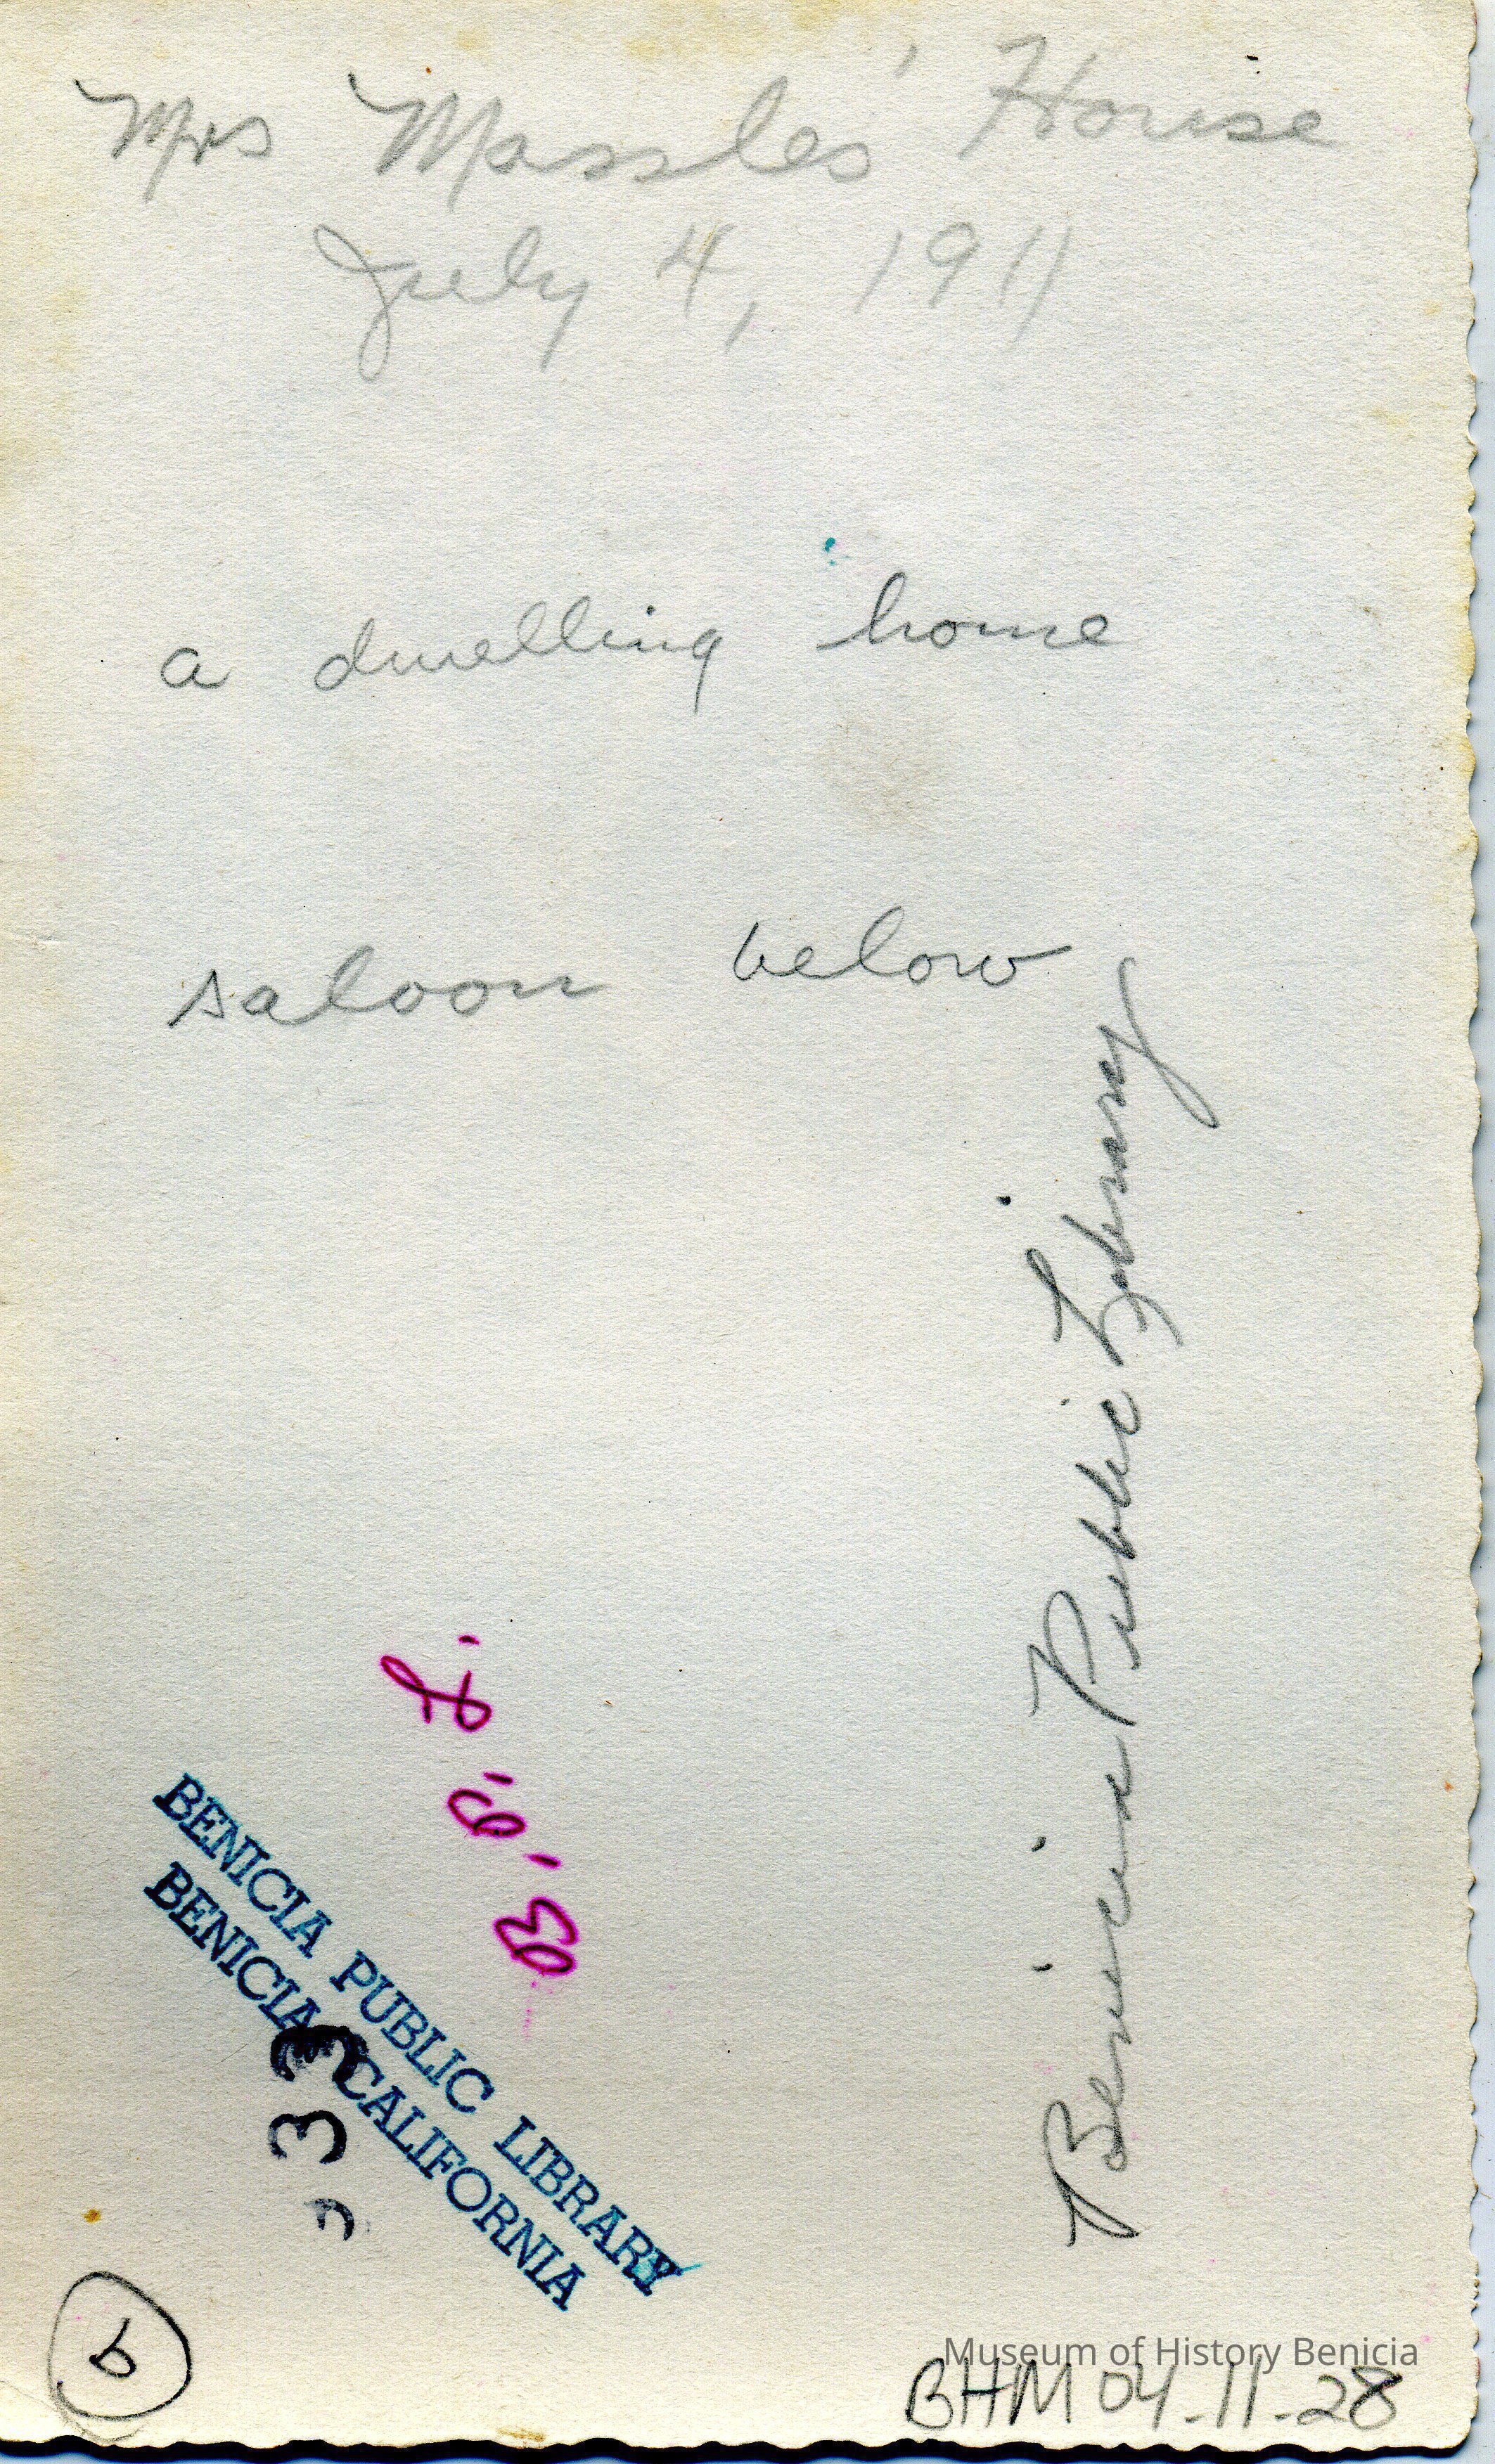 Mrs Massles' House
July 4, 1911
a dwelling home
saloon below
Benicia Public Library
BENICIA PUBLIC LIBRARY
BENICIA CALIFORNIA
b
Museum of History Benicia
BHM 04-11-28